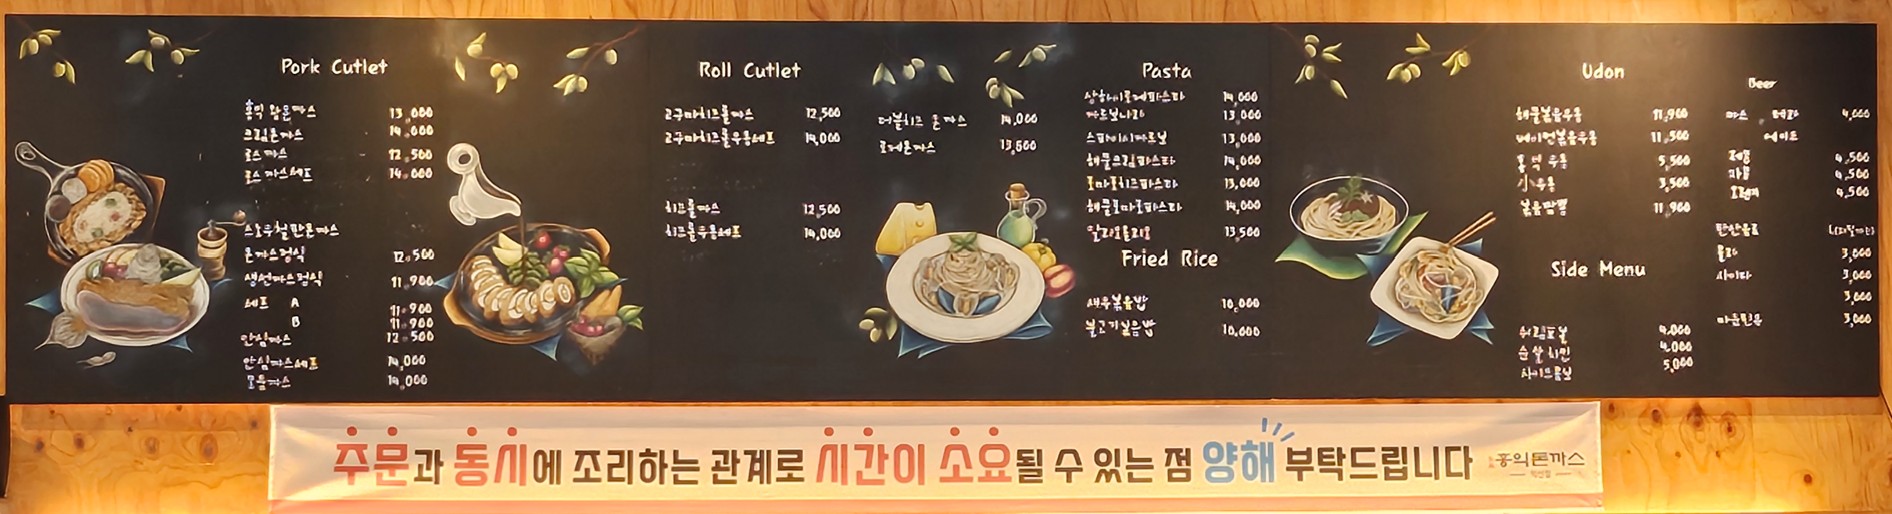 Pork Cutlet
홍익 왕돈까스 13,000
크림돈까스 14,000
로스까스 12,500
로스까스세트 14,000
돈까스정식 12,500
생선까스정식 11,900
세트 A 11,900
B 11,900
안심까스 12,500
안심까스세트 14,000
모듬까스 14,000
Roll Cutlet
고구마치즈롤까스 12,500
고구마치즈롤우동세트 14,000
치즈롤까스 12,500
치즈롤우동세트 14,000
더블치즈 돈까스 14,000
로제돈까스 13,500
Pasta
상하이로제파스타 14,000
까르보나라 13,000
스파이시까르보 13,000
해물크림파스타 14,000
토마토치즈파스타 13,000
해물토마토파스타 14,000
알리오올리오 13,500
Fried Rice
새우볶음밥 10,000
불고기볶음밥 10,000
Udon
해물볶음우동 11,900
베이컨볶음우동 11,500
홍익 우동 5,500
小우동 3,500
볶음짬뽕 11,900
Side Menu
쉬림프볼 4,000
순살치킨 4,000
사이드롤 5,000
Beer
카스 테라 4,000
에이드
레몬 4,500
자몽 4,500
오렌지 4,500
탄산음료
콜라 3,000
사이다 3,000
3,000
3,000
주문과 동시에 조리하는 관계로 시간이 소요될 수 있는 점 양해 부탁드립니다 홍익돈까스